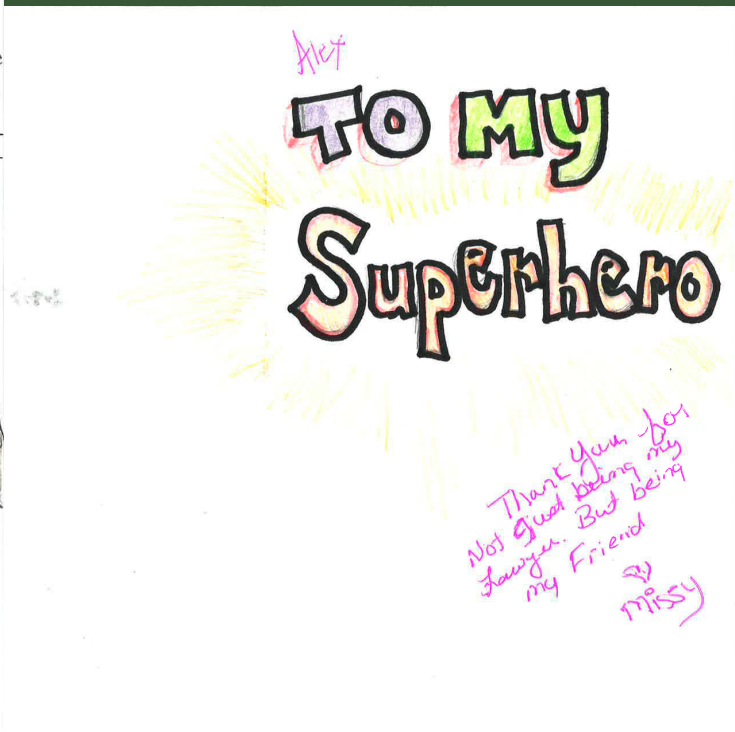 Alex
TO MY
Superhero
Thank you for
Not Just being my
Lawyer. But being
my Friend
Missy